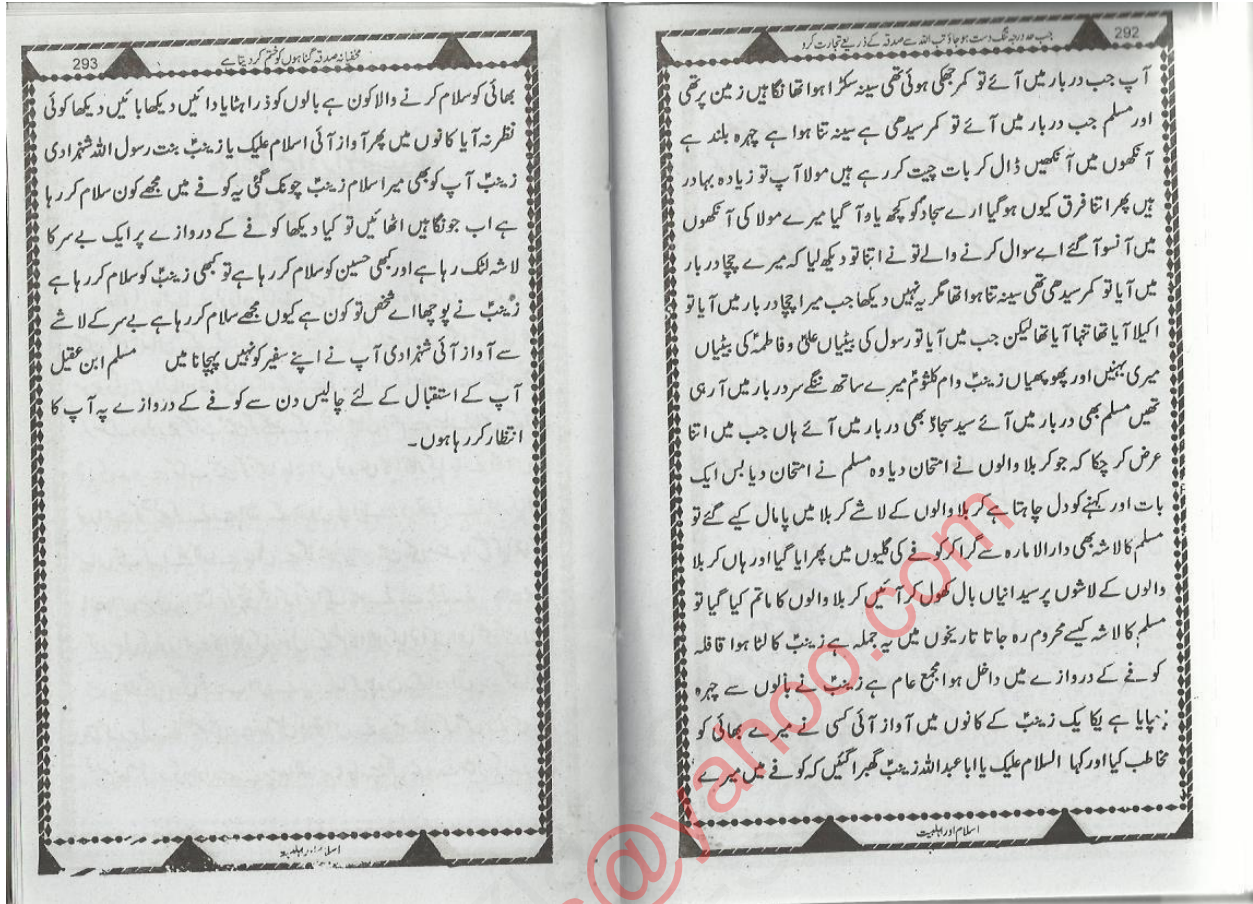 292
جب حد درجہ تنگ دست ہو جاؤ تب اللہ سے صدقہ کے ذریعے تجارت کرو
آپ جب دربار میں آئے تو کمر جھکی ہوئی تھی سینہ سکڑا ہوا تھا نگاہیں زمین پر تھی
اور مسلم جب دربار میں آئے تو کمر سیدھی ہے سینہ تنا ہوا ہے چہرہ بلند ہے
آنکھوں میں آنکھیں ڈال کر بات چیت کر رہے ہیں مولا آپ تو زیادہ بہادر
ہیں پھر اتنا فرق کیوں ہو گیا ارے سجاد کو کچھ یاد آ گیا میرے مولا کی آنکھوں
میں آنسو آ گئے اے سوال کرنے والے تو نے اتنا تو دیکھ لیا کہ میرے چچا دربار
میں آیا تو کمر سیدھی تھی سینہ تنا ہوا تھا مگر یہ نہیں دیکھا جب میرا چچا دربار میں آیا تو
اکیلا آیا تھا تنہا آیا تھا لیکن جب میں آیا تو رسول کی بیٹیاں علیؑ و فاطمہؑ کی بیٹیاں
میری بہنیں اور پھوپھیاں زینبؑ و ام کلثومؑ میرے ساتھ ننگے سر دربار میں آ رہی
تھیں مسلم بھی دربار میں آئے سید سجادؑ بھی دربار میں آئے ہاں جب میں اتنا
عرض کر چکا کہ جو کربلا والوں نے امتحان دیا وہ مسلم نے امتحان دیا بس ایک
بات اور کہنے کو دل چاہتا ہے کربلا والوں کے لاشے کربلا میں پامال کیے گئے تو
مسلم کا لاشہ بھی دار الامارہ سے گرا کر کوفے کی گلیوں میں پھرایا گیا اور ہاں کربلا
والوں کے لاشوں پر سیدانیاں بال کھول کر آئیں کربلا والوں کا ماتم کیا گیا تو
مسلم کا لاشہ کیسے محروم رہ جاتا تاریخوں میں یہ جملہ ہے زینبؑ کا لٹا ہوا قافلہ
کوفے کے دروازے میں داخل ہوا مجمع عام ہے زینبؑ نے بالوں سے چہرہ
چھپایا ہے یکا یک زینبؑ کے کانوں میں آواز آئی کسی نے میرے بھائی کو
مخاطب کیا اور کہا السلام علیک یا ابا عبداللہ زینبؑ گھبرا گئیں کہ کوفے میں میرے
اسلام اور اہلبیت
293
مخفیانہ صدقہ گناہوں کو ختم کر دیتا ہے
بھائی کو سلام کرنے والا کون ہے بالوں کو ذرا ہٹایا دائیں دیکھا بائیں دیکھا کوئی
نظر نہ آیا کانوں میں پھر آواز آئی اسلام علیک یا زینبؑ بنت رسول اللہ شہزادی
زینبؑ آپ کو بھی میرا سلام زینبؑ چونک گئی یہ کوفے میں مجھے کون سلام کر رہا
ہے اب جو نگاہیں اٹھائیں تو کیا دیکھا کوفے کے دروازے پر ایک بے سر کا
لاشہ لٹک رہا ہے اور کبھی حسین کو سلام کر رہا ہے تو کبھی زینبؑ کو سلام کر رہا ہے
زینبؑ نے پوچھا اے شخص تو کون ہے کیوں مجھے سلام کر رہا ہے بے سر کے لاشے
سے آواز آئی شہزادی آپ نے اپنے سفیر کو نہیں پہچانا میں مسلم ابن عقیل
آپ کے استقبال کے لئے چالیس دن سے کوفے کے دروازے پہ آپ کا
انتظار کر رہا ہوں۔
اسلام اور اہلبیت
s@yahoo.com